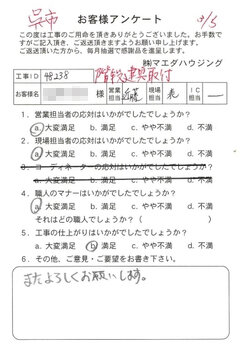 呉市 お客様アンケート 2/5
この度は工事のご用命を頂きありがとうございました。お手数で
すがご記入頂き、ご返送頂きますようお願い申し上げます。
ご返送頂いた方から、毎月抽選で感謝品を進呈します。
㈱マエダハウジング
階段 建具取付
工事ID 48238
お客様名 営業担当 近藤 現場担当 表 IC担当 ―
1.営業担当者の応対はいかがでしたでしょうか?
a.大変満足 b.満足 c.やや不満 d.不満
2.現場担当者の応対はいかがでしたでしょうか?
a.大変満足 b.満足 c.やや不満 d.不満
3.コーディネーターの応対はいかがでしたでしょうか?
a.大変満足 b.満足 c.やや不満 d.不満
4.職人のマナーはいかがでしたでしょうか?
a.大変満足 b.満足 c.やや不満 d.不満
それはどの職人でしょうか?( )
5.工事の仕上がりはいかがでしたでしょうか?
a.大変満足 b.満足 c.やや不満 d.不満
6.その他、ご意見・ご要望をお書き下さい。
またよろしくお願いします。